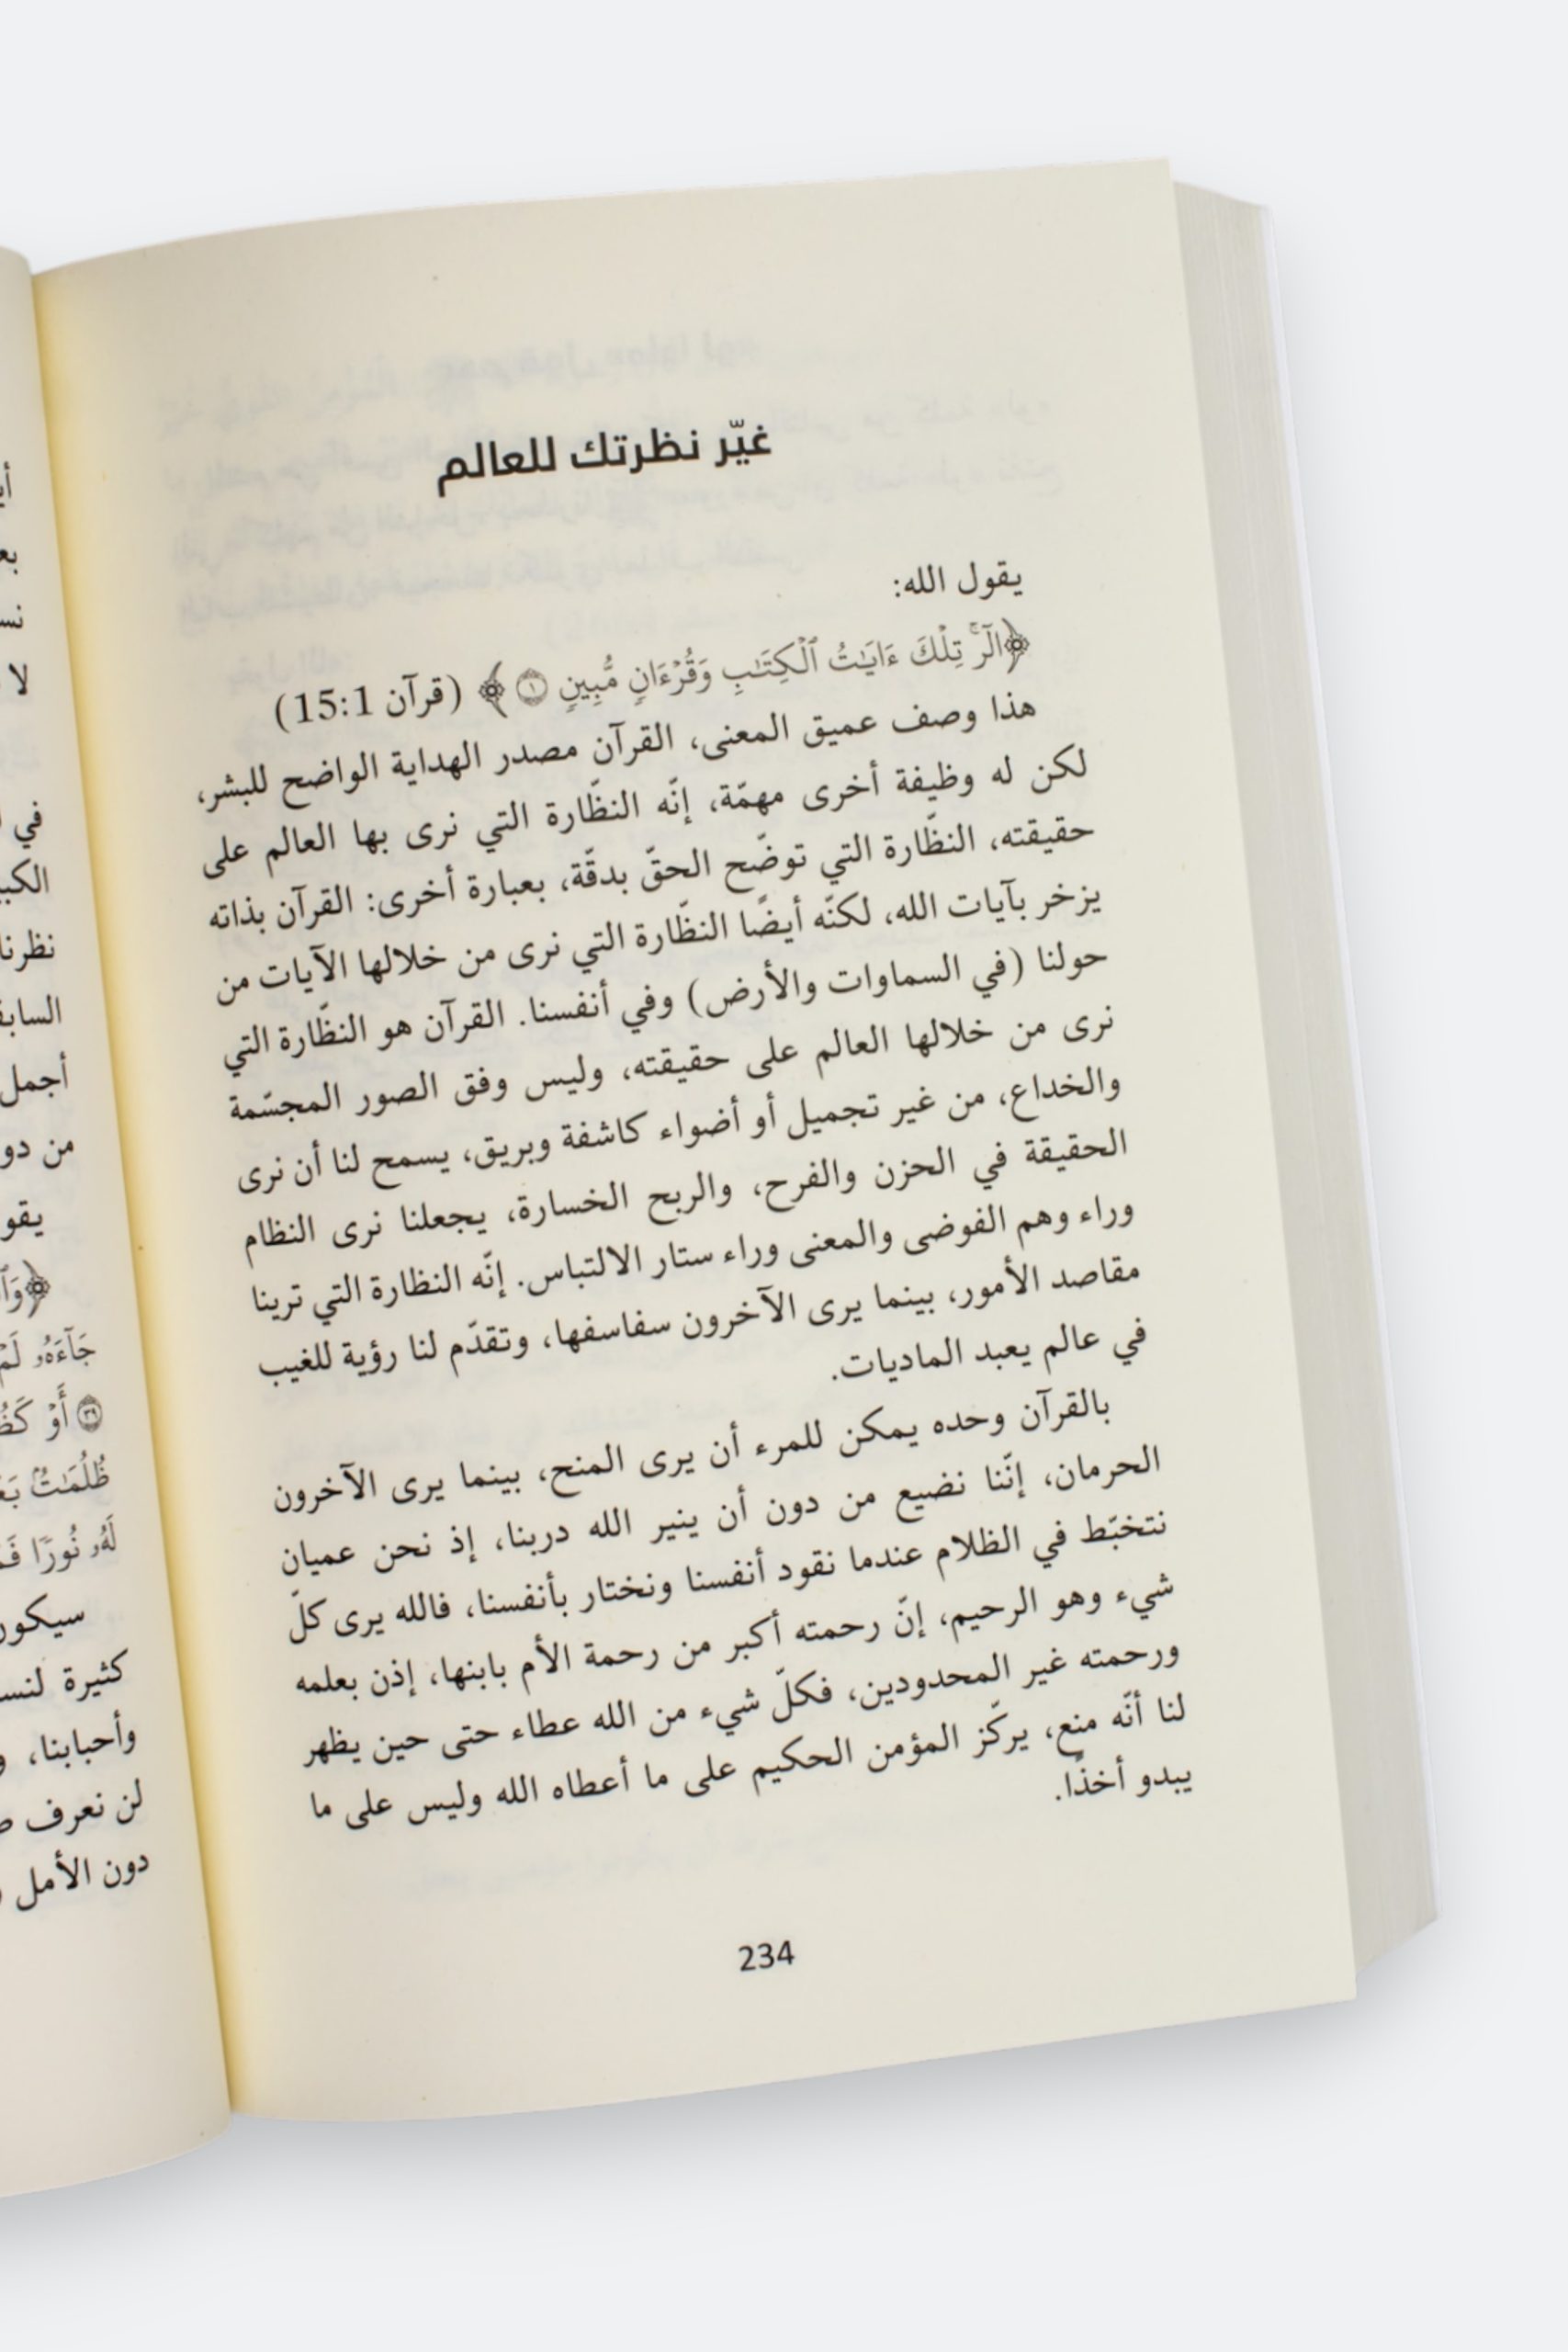 غيّر نظرتك للعالم
يقول الله:
﴿الٓرۚ تِلۡكَ ءَايَٰتُ ٱلۡكِتَٰبِ وَقُرۡءَانٖ مُّبِينٖ ۝١﴾ (قرآن 15:1)
هذا وصف عميق المعنى، القرآن مصدر الهداية الواضح للبشر،
لكن له وظيفة أخرى مهمّة، إنّه النظّارة التي نرى بها العالم على
حقيقته، النظّارة التي توضّح الحقّ بدقّة، بعبارة أخرى: القرآن بذاته
يزخر بآيات الله، لكنّه أيضًا النظّارة التي نرى من خلالها الآيات من
حولنا (في السماوات والأرض) وفي أنفسنا. القرآن هو النظّارة التي
نرى من خلالها العالم على حقيقته، وليس وفق الصور المجسّمة
والخداع، من غير تجميل أو أضواء كاشفة وبريق، يسمح لنا أن نرى
الحقيقة في الحزن والفرح، والربح الخسارة، يجعلنا نرى النظام
وراء وهم الفوضى والمعنى وراء ستار الالتباس. إنّه النظارة التي ترينا
مقاصد الأمور، بينما يرى الآخرون سفاسفها، وتقدّم لنا رؤية للغيب
في عالم يعبد الماديات.
بالقرآن وحده يمكن للمرء أن يرى المنح، بينما يرى الآخرون
الحرمان، إنّنا نضيع من دون أن ينير الله دربنا، إذ نحن عميان
نتخبّط في الظلام عندما نقود أنفسنا ونختار بأنفسنا، فالله يرى كلّ
شيء وهو الرحيم، إنّ رحمته أكبر من رحمة الأم بابنها، إذن بعلمه
ورحمته غير المحدودين، فكلّ شيء من الله عطاء حتى حين يظهر
لنا أنّه منع، يركّز المؤمن الحكيم على ما أعطاه الله وليس على ما
يبدو أخذًا.
234
في
نظرنا
أجمل
من
﴿
جَآءَهُۥ
۝٣٩ أَوۡ
ظُلُمَٰتُۢ
لَهُۥ نُورٗا
كثيرة
وأحبابنا،
لن نعرف
دون الأمل